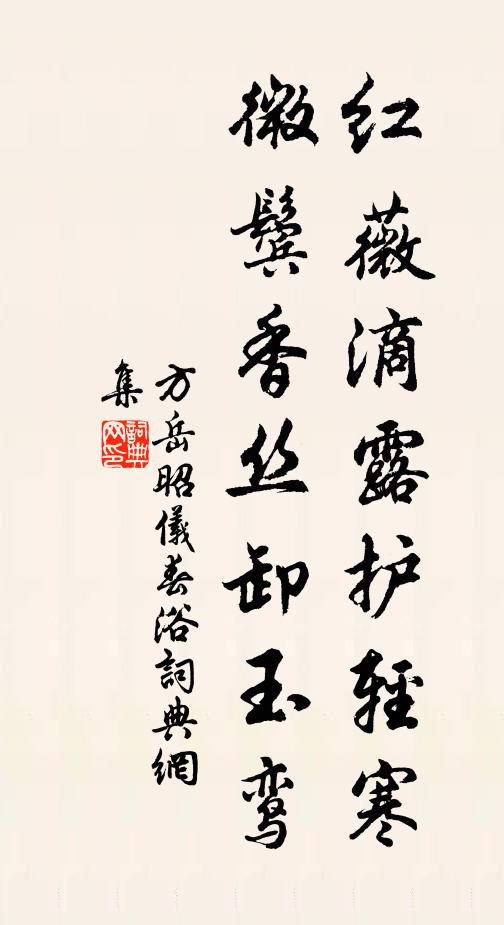 红薇滴露护轻寒
微鬓香丝卸玉鸾
方岳昭儀春浴詞典網
集
詞典网印